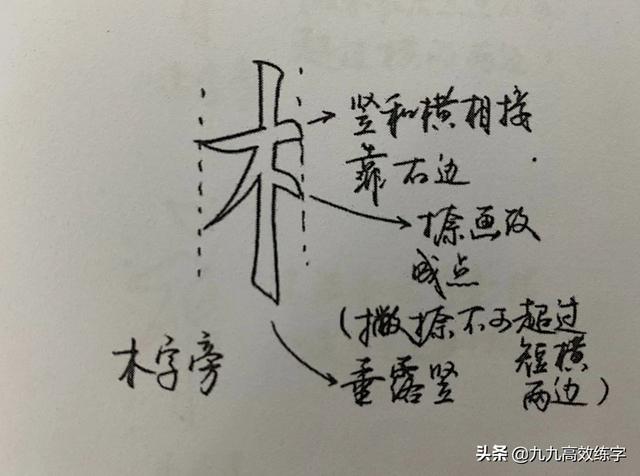 木
竖和横相接
靠右边
捺画改
成点
(撇捺不可超过
短横
两边)
垂露竖
木字旁
头条 @九九高效练字